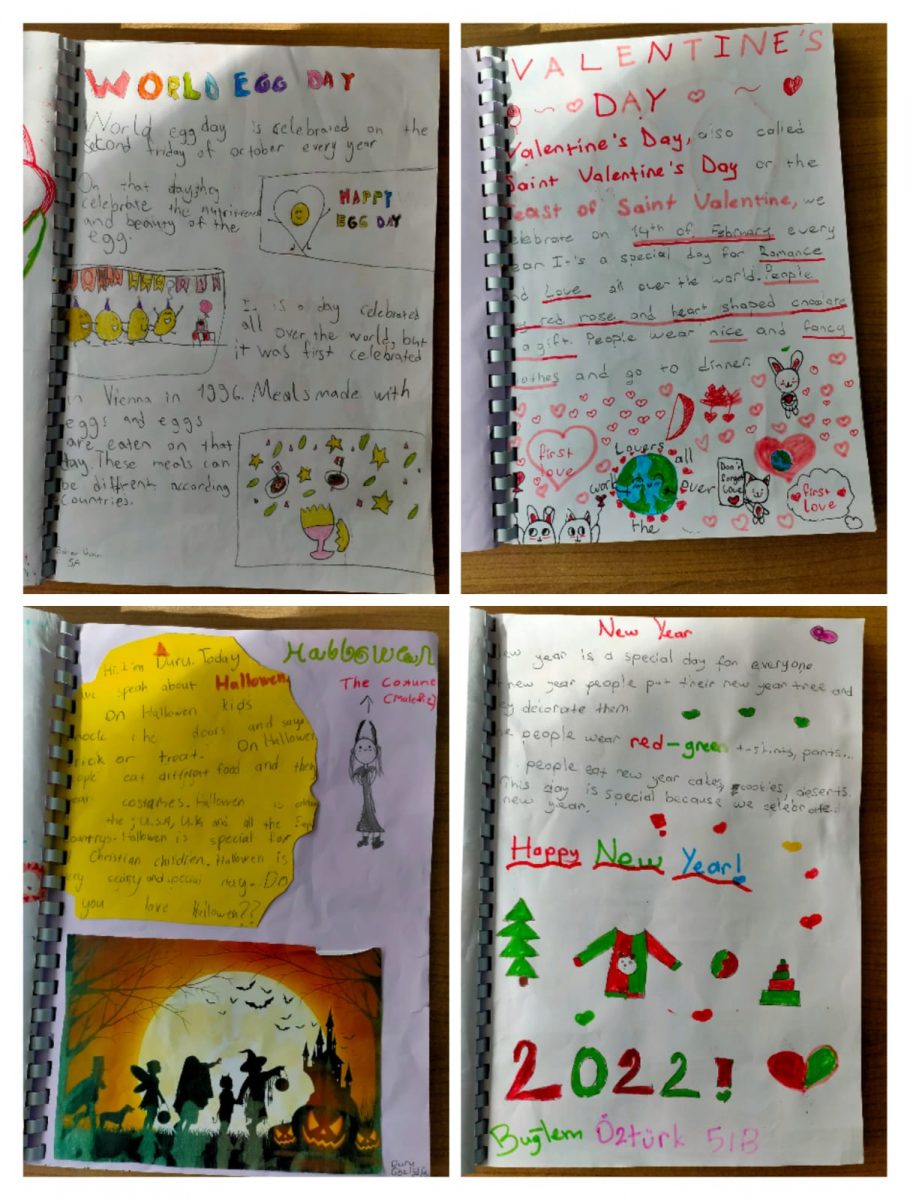 WORLD EGG DAY
World egg day is celebrated on the
second friday of october every year
On that day they
celebrate the
and beauty of the
egg.
HAPPY
EGG DAY
It is a day celebrated
all over the world, but
it was first celebrated
in Vienna in 1996. Meals made with
eggs and eggs
are eaten on that
day. These meals can
be different according
countries.
5/A
VALENTINE'S
DAY
Valentine's Day, also called
Saint Valentine's Day or the
Feast of Saint Valentine, we
celebrate on 14th of February every
ear It's a special day for Romance
nd Love all over the world. People
red rose and heart shaped chocolate
a gift. People wear nice and fancy
lothes and go to dinner.
first
love
Lovers
all
over
the
world
Don't
forget
Love
first
love
Hi. I'm Duru. Today
speak about Hallowen
On Hallowen kids
nock the doors and says
rick or treat. On Hallowen
ople eat different food and they
ear costumes. Hallowen is
the U.S.A, U.K and all the
countrys. Hallowen is special for
Christian children. Hallowen is
ery scary and special day. Do
you love Hallowen??
The Costume
Duru
New Year
ew year is a special day for everyone
new year people put their new year tree and
ey decorate them.
e people wear red-green t-shirts, pants...
people eat new year cakes, cookies, deserts.
This day is special because we celebrate
new year.
Happy New Year!
2022!
Buğlem Öztürk 5/B